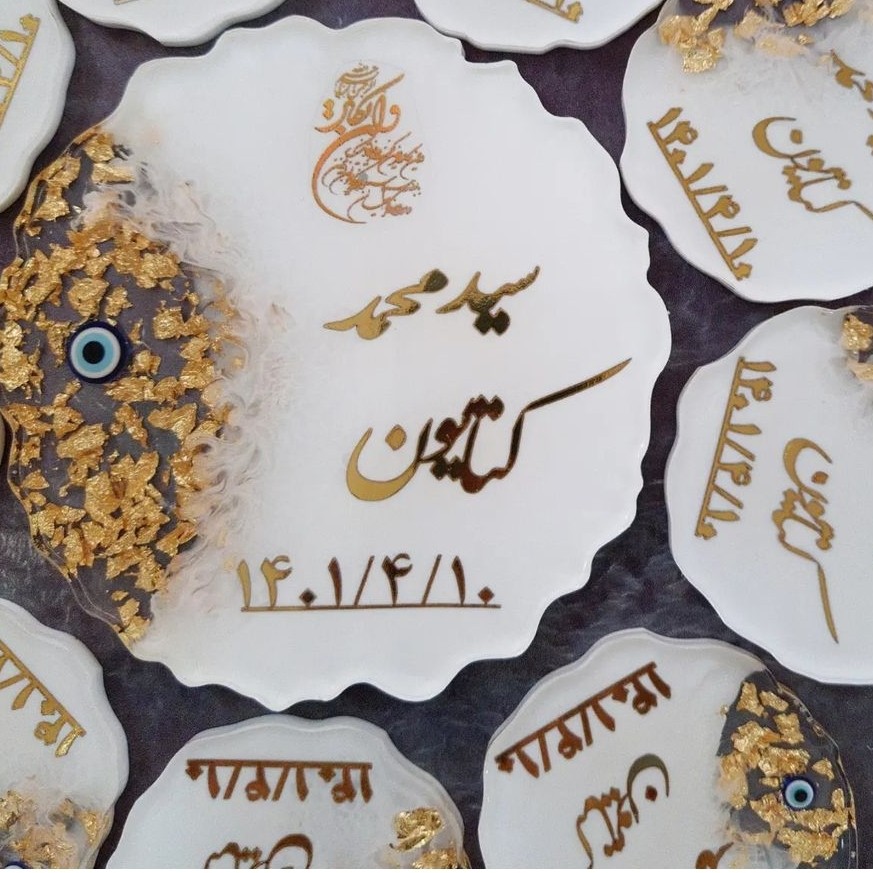 وان یکاد
سید محمد
کتایون
۱۴۰۱/۴/۱۰
۱۴۰۱/۴/۱۰
کتایون
۱۴۰۱/۴/۱۰
کتایون
۱۴۰۱/۴/۱۰
کتایون
۱۴۰۱/۴/۱۰